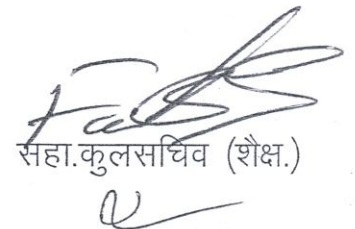 सहा.कुलसचिव (शैक्ष.)